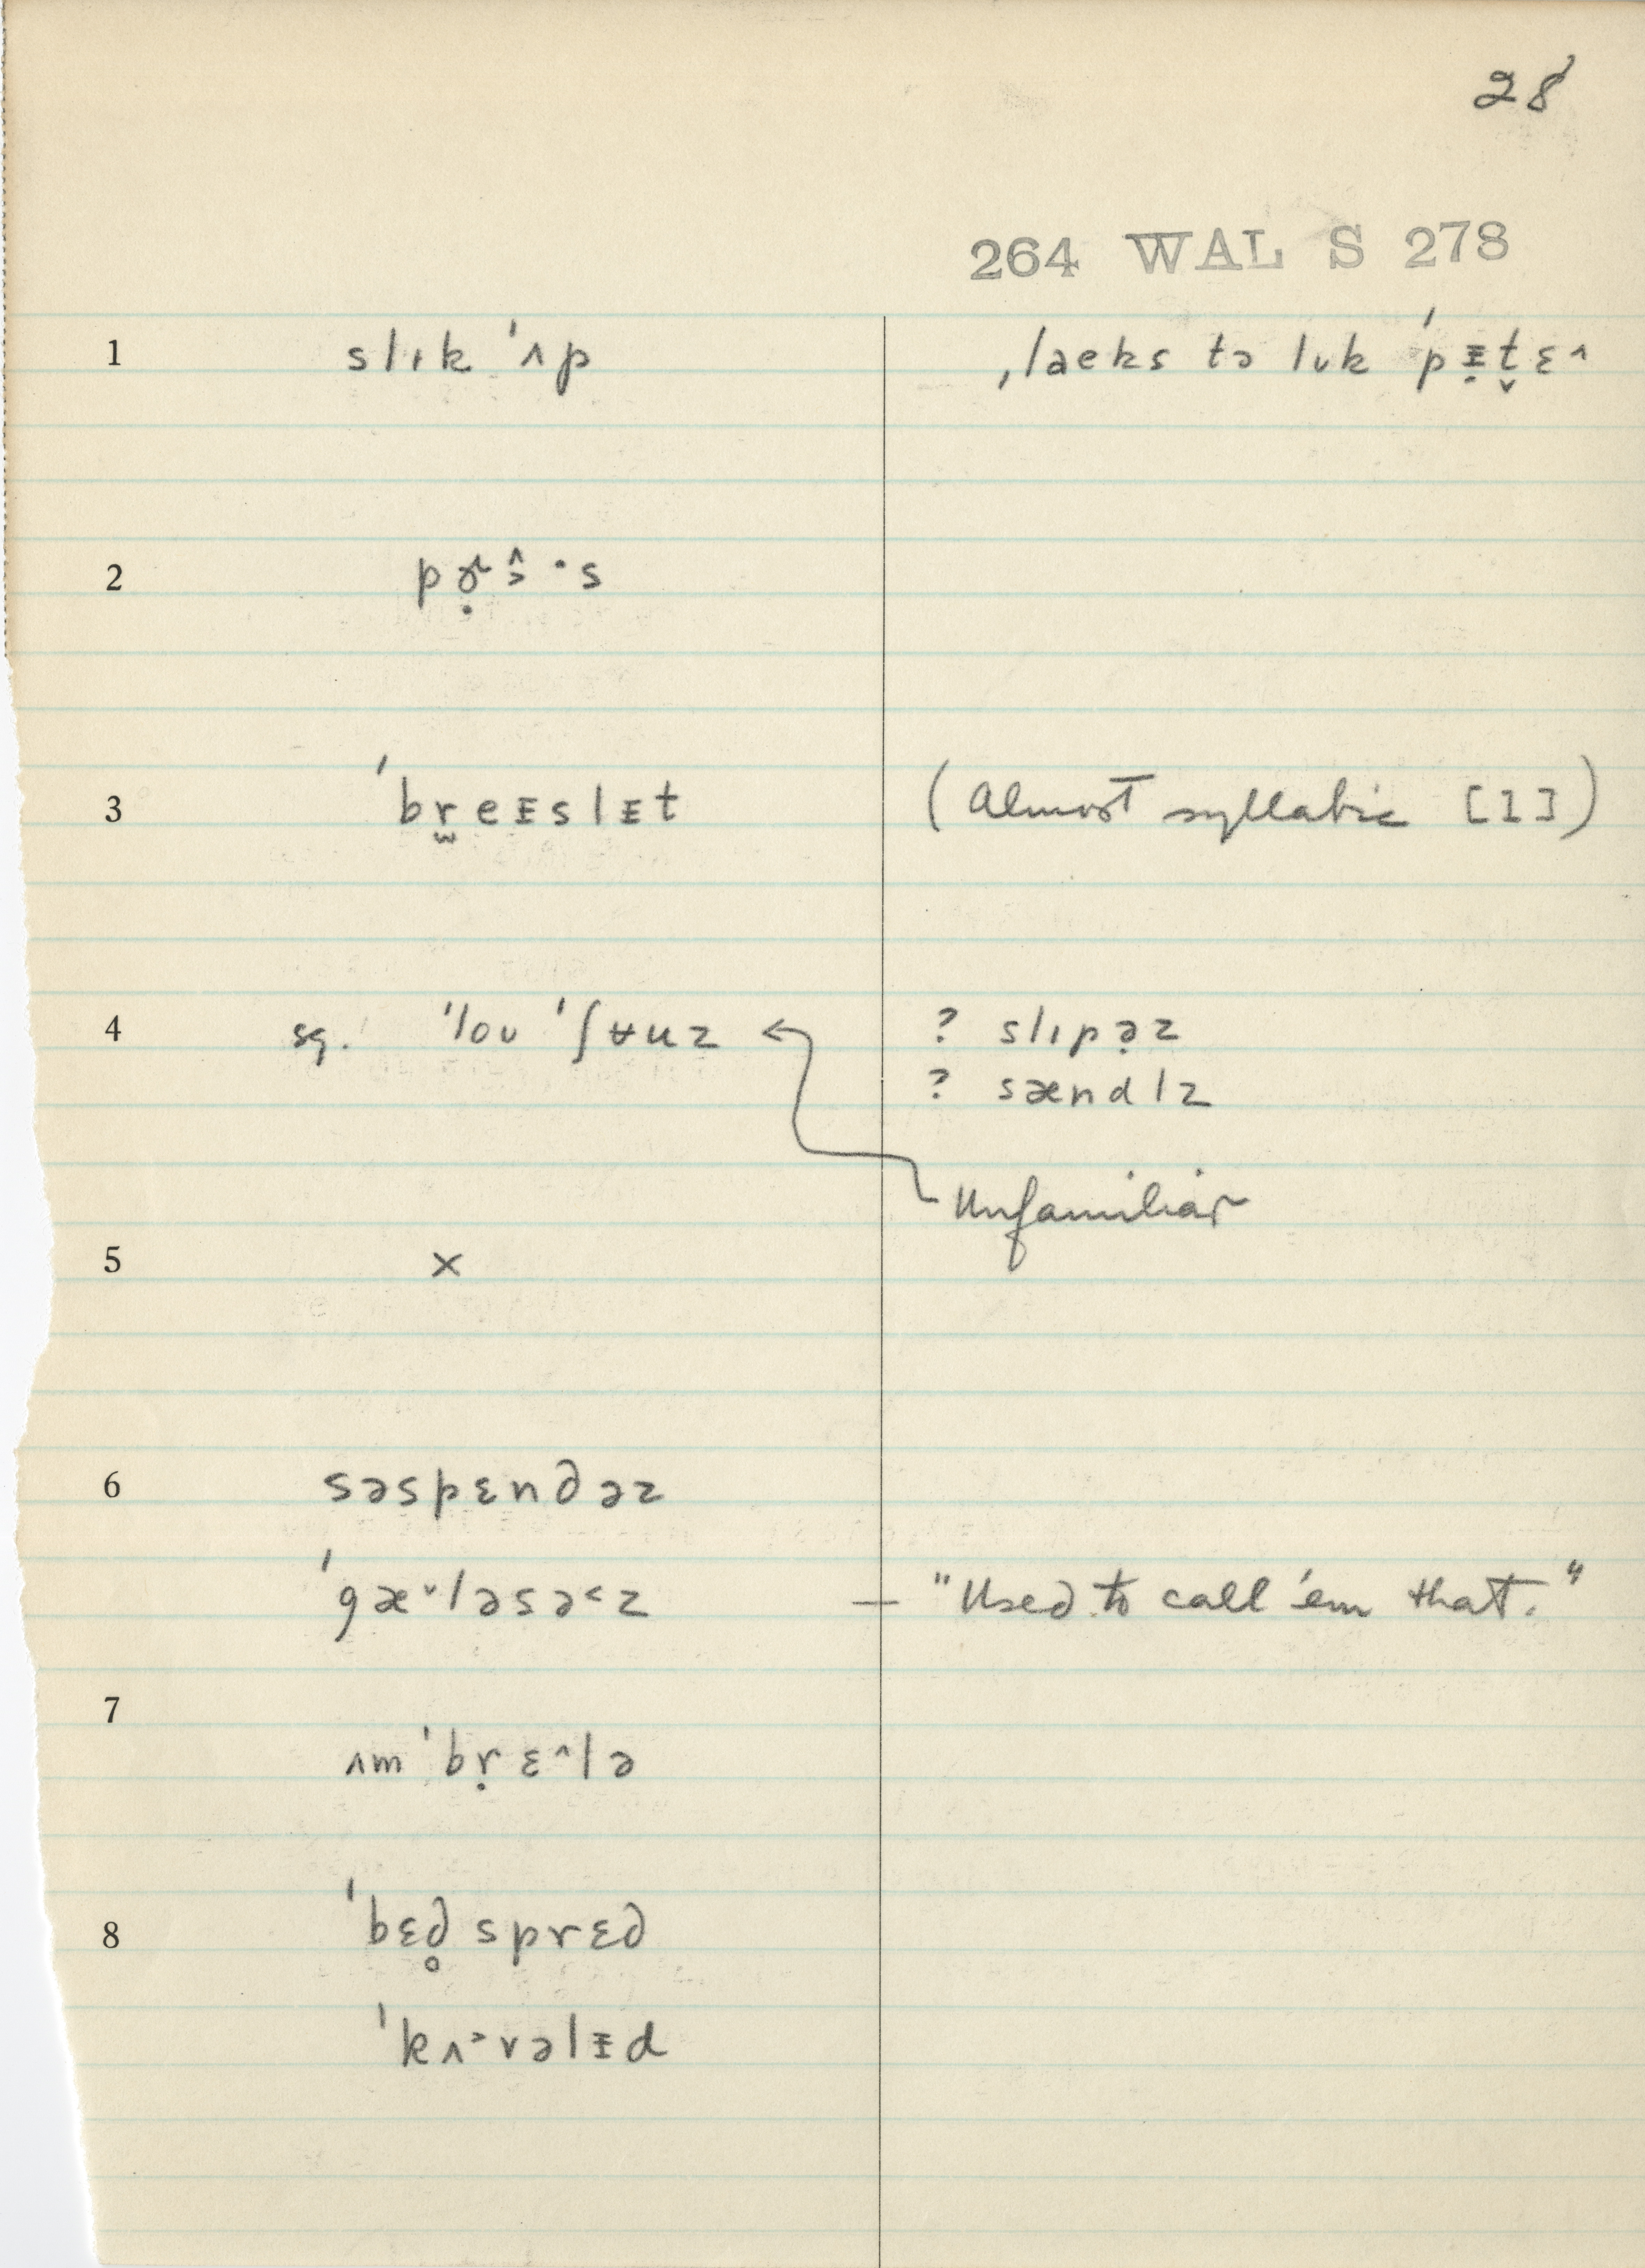 28
264 WAL S 278
1 slɪk ˈʌp ˌlaeks tə lʊk ˈpᵻ̣t̬ɛ^
2 pɚ̣ɔ̂·s
3 ˈbr̫eᵻslᵻt (Almost syllabic [l])
4 sg. ˈloʊ ˈʃʉuz ← ? slɪpə̣z
? sændlz
Unfamiliar
5 ×
6 səspɛndəz
ˈgæ˅ləsə˂z — "Used to call 'em that."
7
ʌmˈbṛɛ^lə
8 ˈbɛd̥sprɛd
ˈkʌ˃vəlᵻd